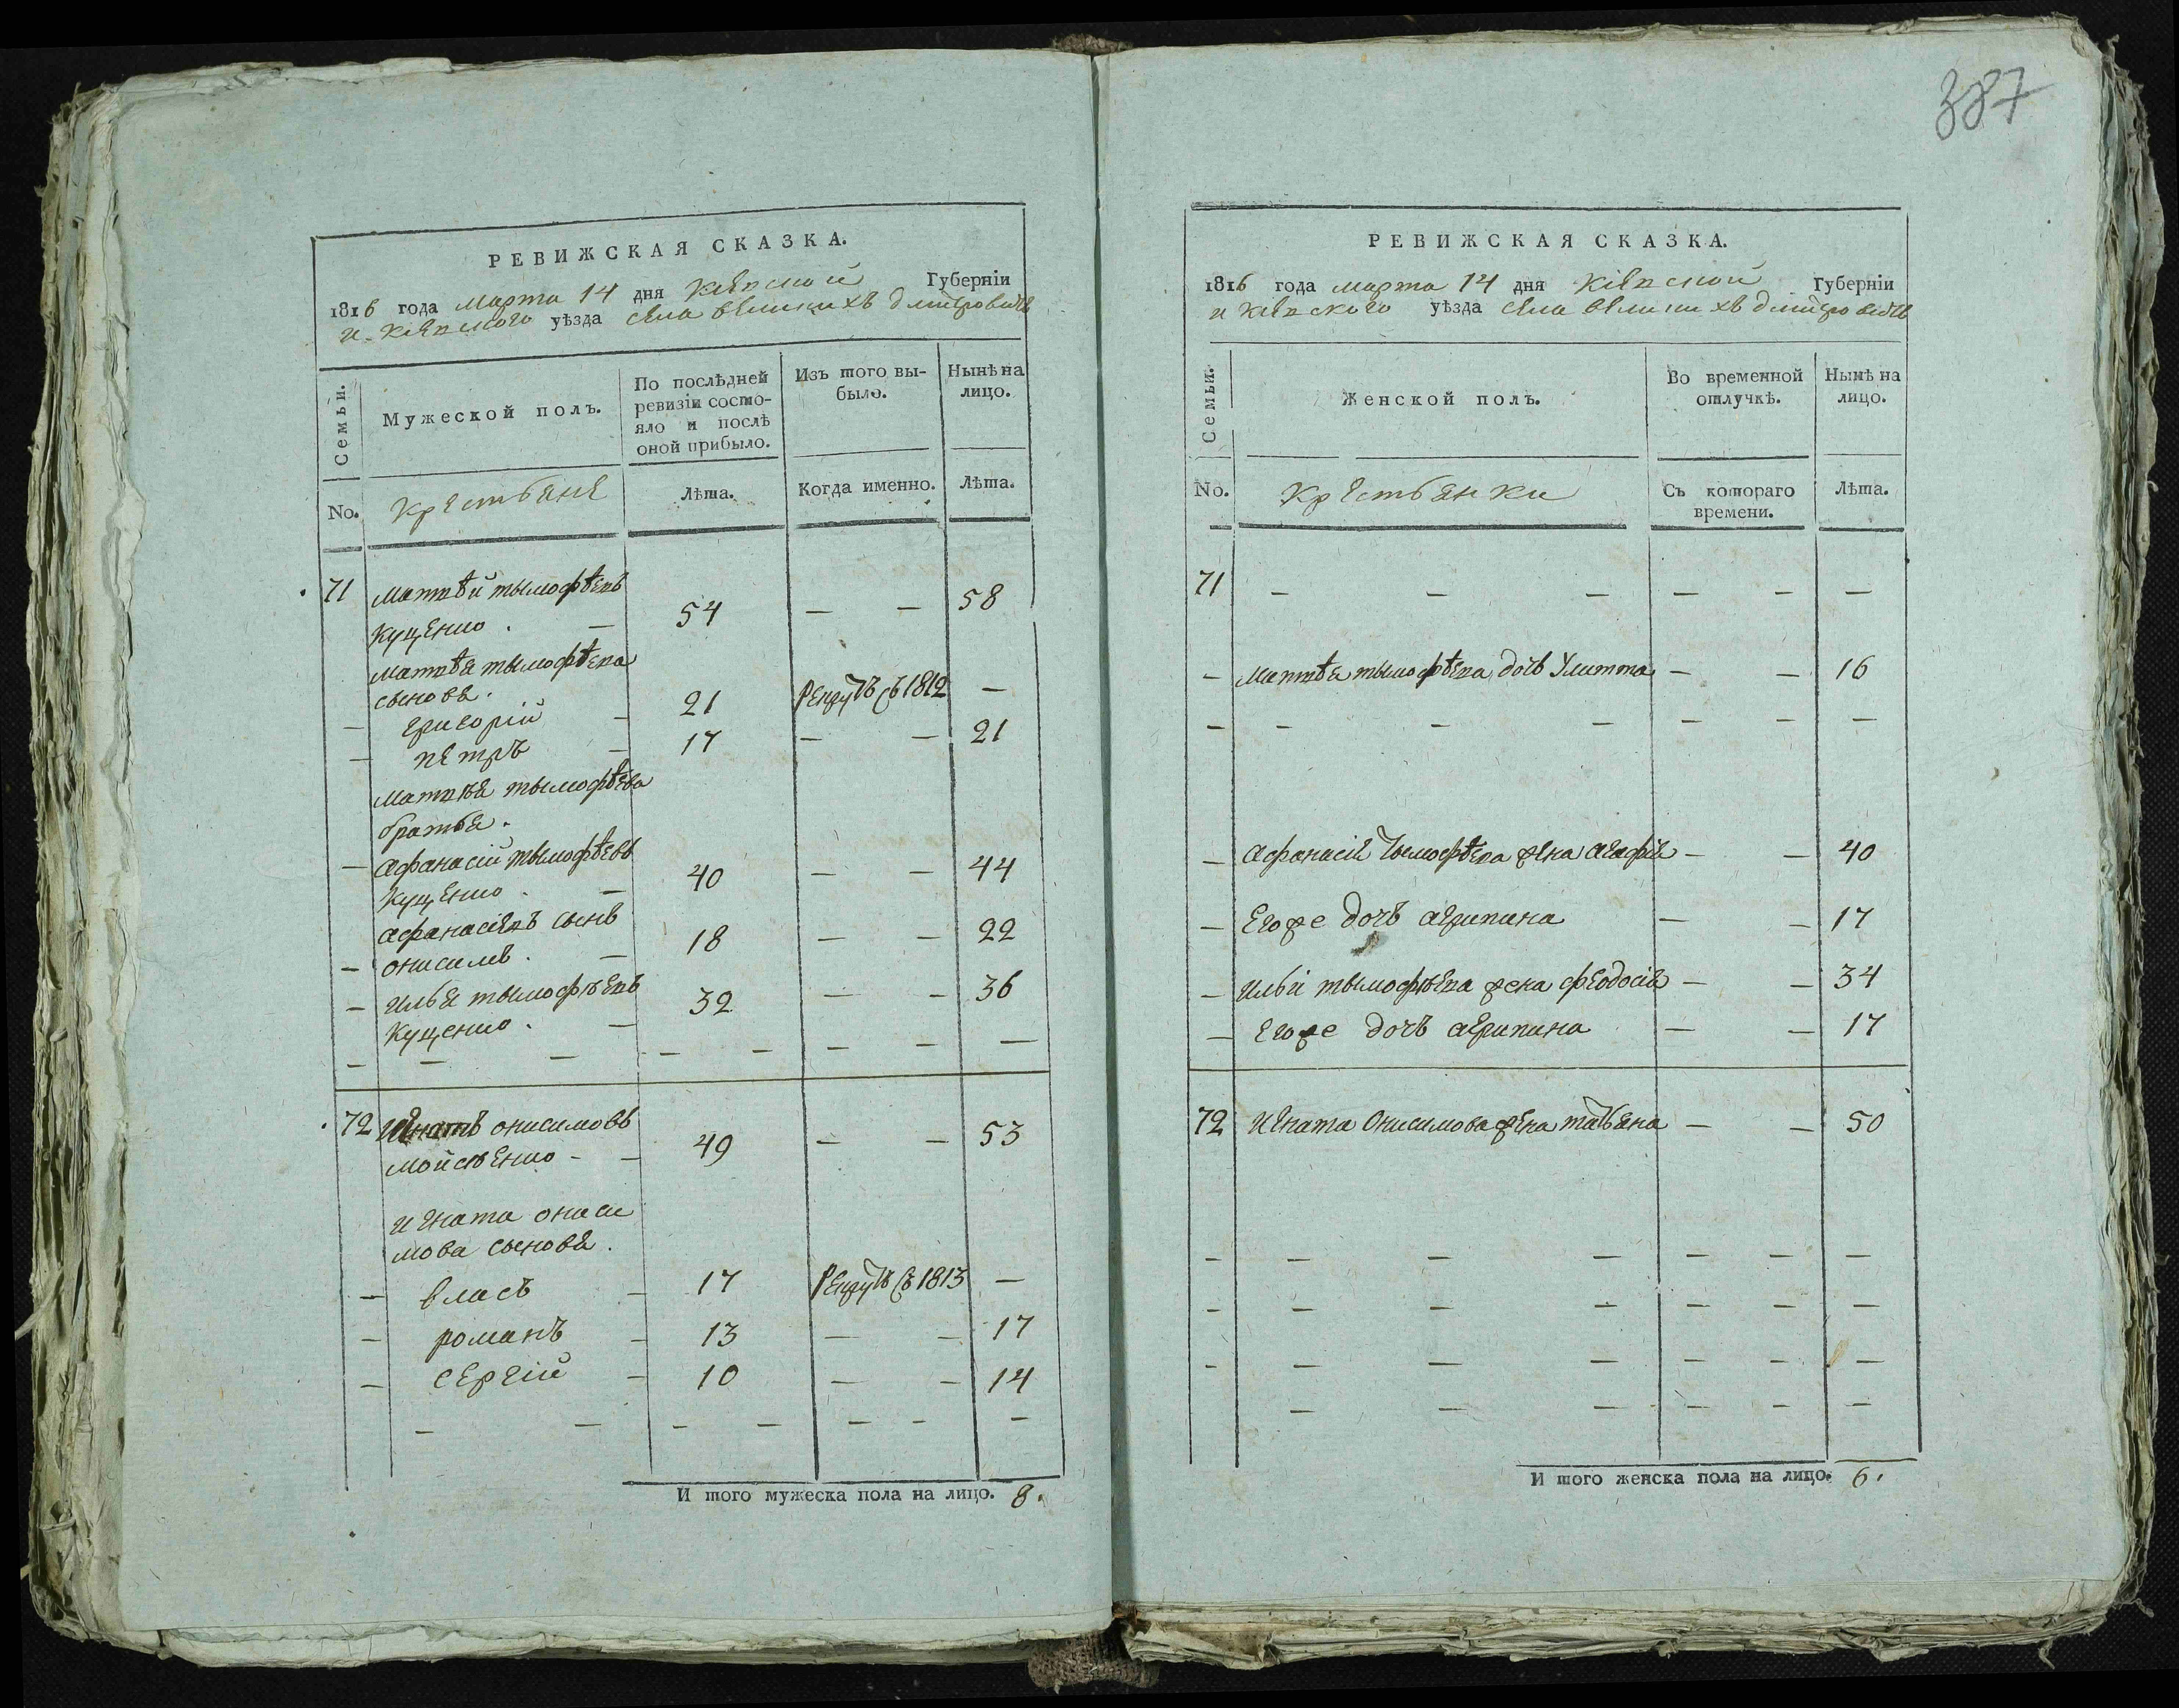 387
РЕВИЖСКАЯ СКАЗКА.
1816 года марта 14 дня Кіевской Губерніи
и Кіевского уѣзда села великихъ дмитровичь
Семьи.
Мужеской полъ.
По послѣдней ревизіи состояло и послѣ оной прибыло.
Изъ того выбыло.
Нынѣ на лицо.
No.
Крестьяне
Лѣта.
Когда именно.
Лѣта.
71 Матвѣй тымофѣевъ
Куценко . — 54 — — 58
Матвѣя тымофѣева
сыновя.
— Григорій — 21 Рекрутъ съ 1812 —
— петръ — 17 — — 21
Матвѣя тымофѣева
братья.
— Афанасій тымофѣевъ
Куценко . — 40 — — 44
Афанасіевъ сынъ
— онисимъ . — 18 — — 22
— Илья тымофѣевъ
Куценко . — 32 — — 36
— — — — — — — —
72 Игнатъ онисимовъ
Мойсѣенко - — 49 — — 53
Игната ониси
мова сыновя.
— власъ — 17 Рекрутъ съ 1813 —
— романъ — 13 — — 17
— сергій — 10 — — 14
— — — — — — —
И того мужеска пола на лицо. 8.
РЕВИЖСКАЯ СКАЗКА.
1816 года марта 14 дня Кіевской Губерніи
и Кіевского уѣзда села великихъ дмитровичь
Семьи.
Женской полъ.
Во временной отлучкѣ.
Нынѣ на лицо.
No.
Крестьянки
Съ котораго времени.
Лѣта.
71 — — — — — —
— Матвѣя тымофѣева дочь Улитта — — 16
— — — — — — —
— Афанасія Тымофѣева жена агафія — — 40
— Егоже дочь агрипина — — 17
— Ильи тымофѣева жена феодосія — — 34
— Егоже дочь агрипина — — 17
72 Игната Онисимова жена татьяна — — 50
— — — — — — —
— — — — — — —
- — — — — — —
— — — — — —
И того женска пола на лицо. 6.